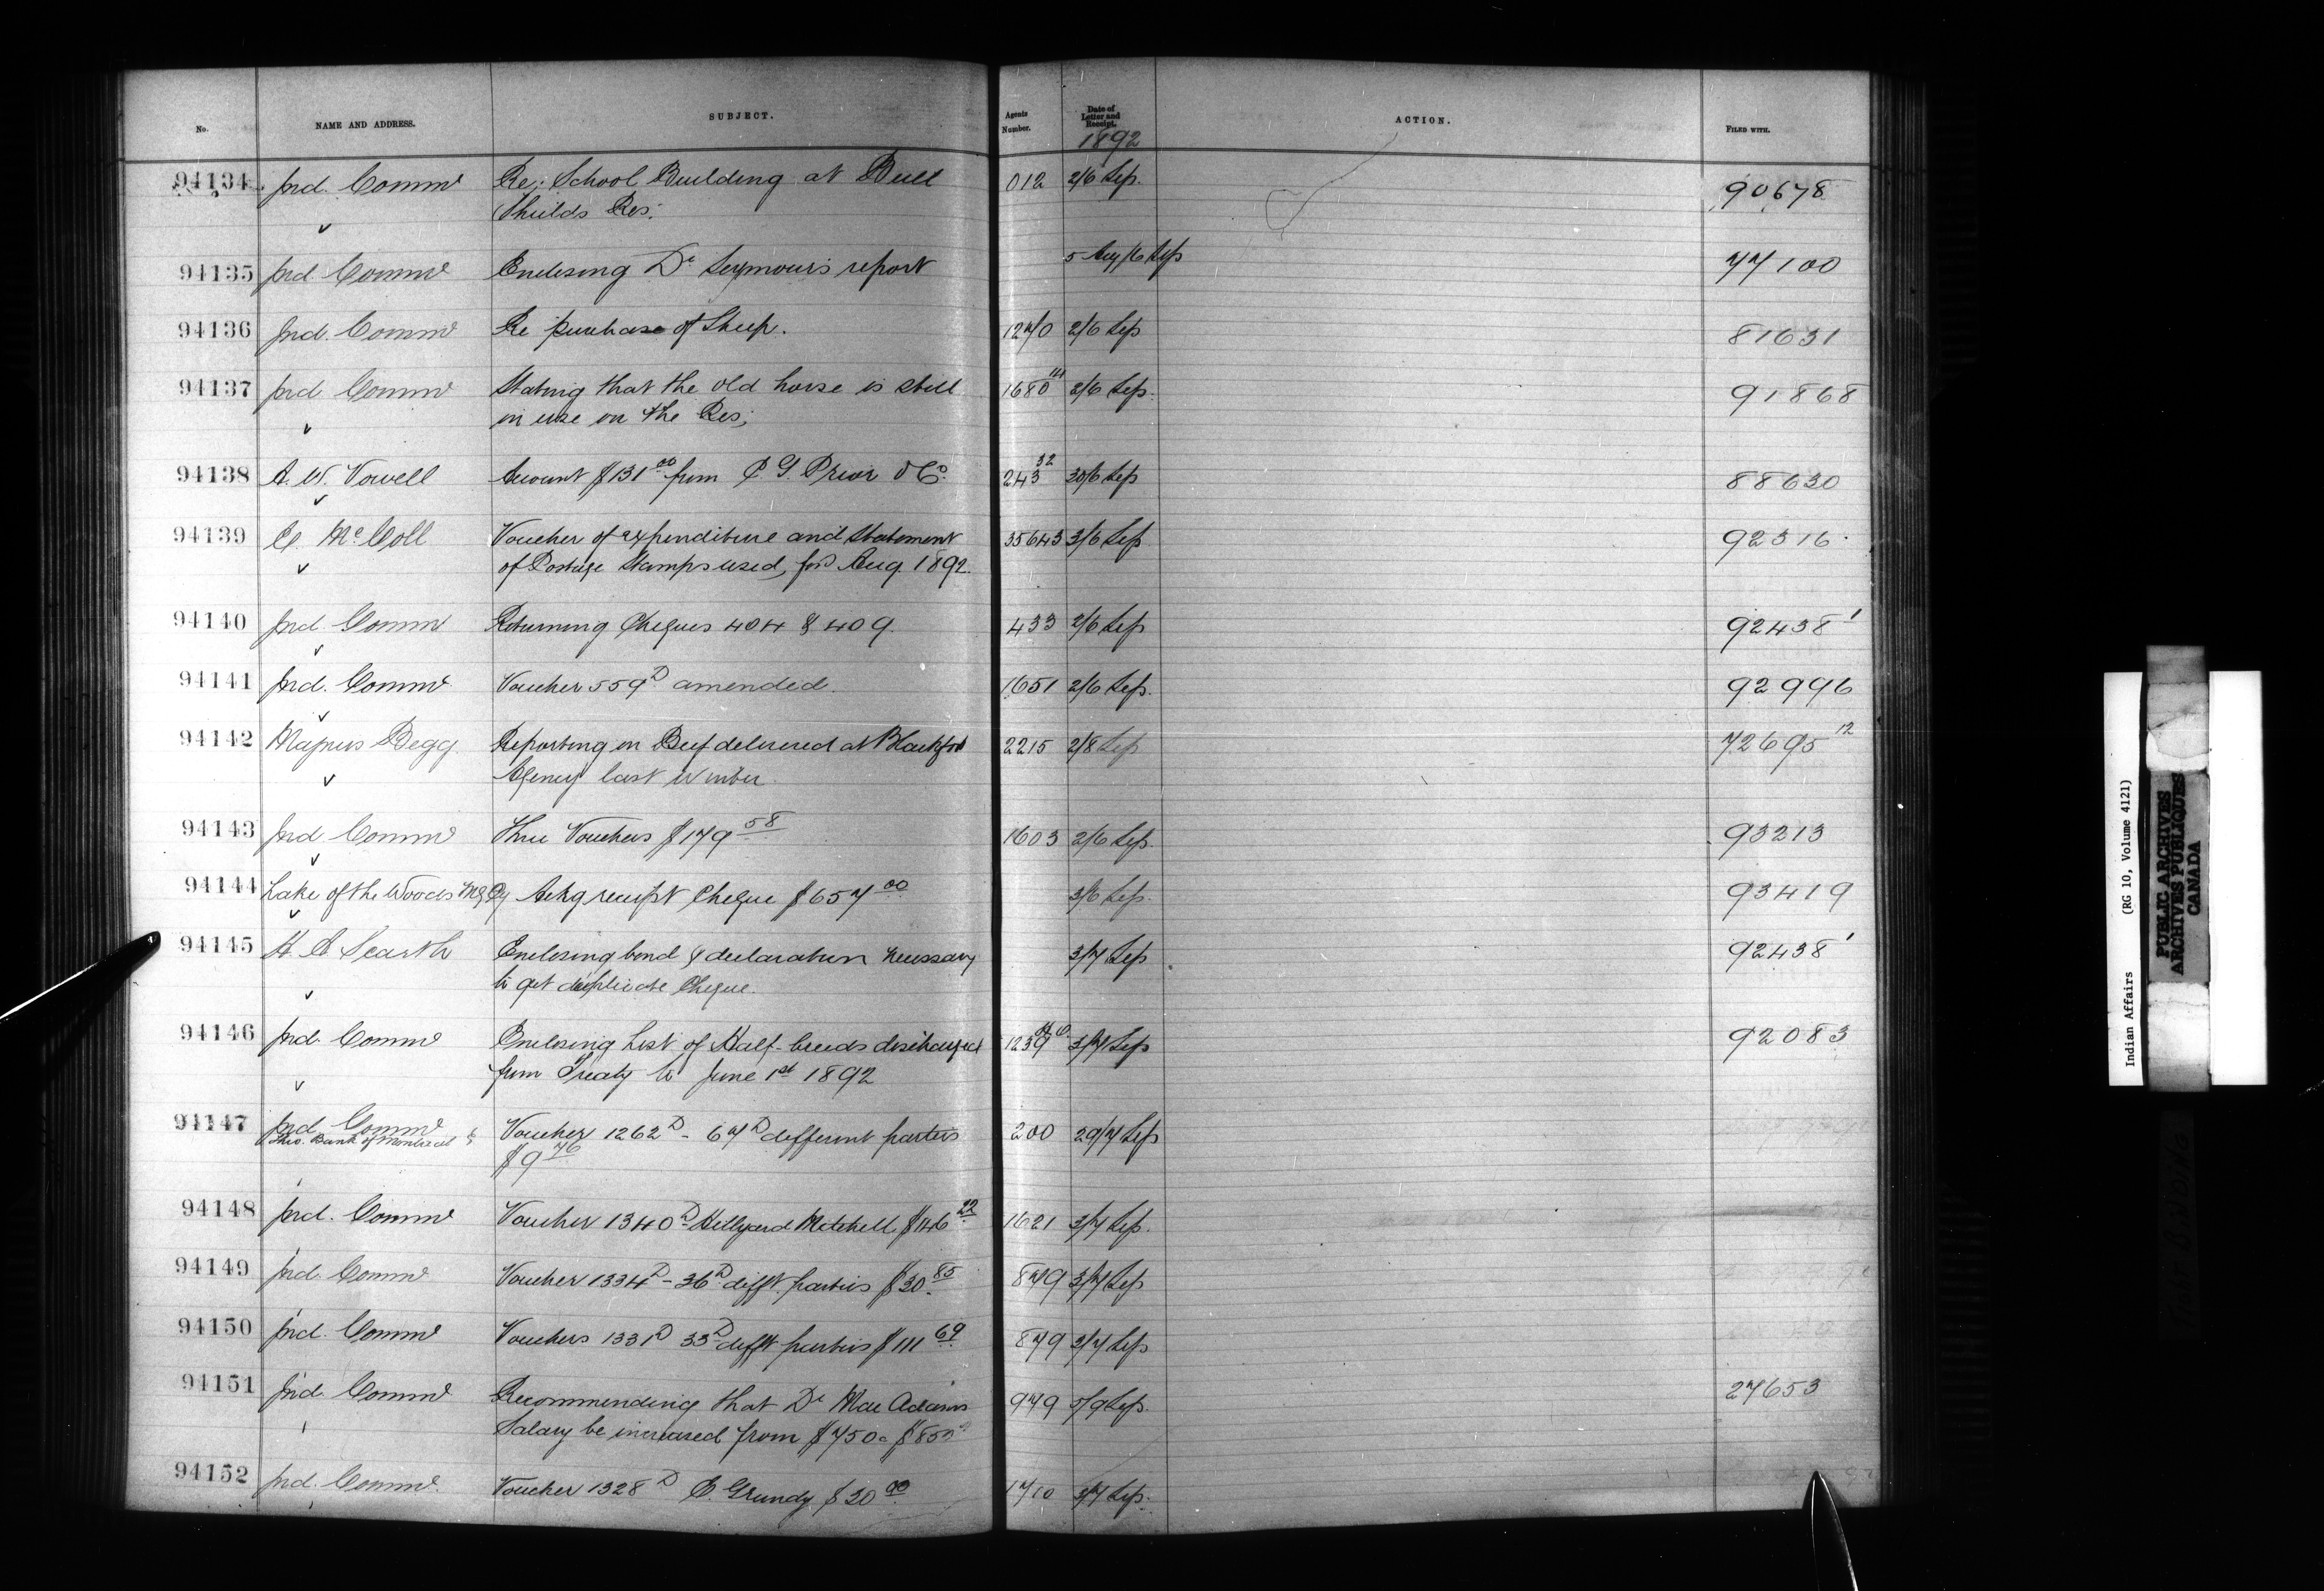 No. NAME AND ADDRESS. SUBJECT. Agents Number. Date of Letter and Receipt. ACTION. FILED WITH.
1892
94134 Ind. Commr Re; School Building at Bull 012 2/6 Sep. 90678
Shields Res:
94135 Ind. Commr Enclosing Dr Seymour's report 5 Aug/6 Sep 77100
94136 Ind. Commr Re purchase of Sheep. 1270 2/6 Sep 81631
94137 Ind. Commr Stating that the old horse is still 1680 2/6 Sep. 91868
in use on the Res;
94138 A. W. Vowell Account $131 00 from P. G. Prior & Co. 243 32 30/6 Sep 88630
94139 E. McColl Voucher of expenditure and Statement 35643 3/6 Sep 92316
of Postage Stamps used, for Aug. 1892.
94140 Ind. Commr Returning Cheques 404 & 409. 433 2/6 Sep 92438 1
94141 Ind. Commr Voucher 559 D amended. 1651 2/6 Sep. 92996
94142 Magnus Begg Reporting on Beef delivered at Blackfoot 2215 2/8 Sep 72695 12
Agency last Winter.
94143 Ind. Commr Three Vouchers $179 58 1603 2/6 Sep. 93213
94144 Lake of the Woods Mlg Cy Ackg receipt Cheque $657 00 3/6 Sep. 93419
94145 Scarth Enclosing bond & declaration necessary 3/7 Sep 92438 1
to get duplicate Cheque.
94146 Ind. Commr Enclosing List of Half-breeds discharged 1239 3/7 Sep 92083
from Treaty to June 1st 1892
94147 Ind. Commr Voucher 1262 D - 67 D different parties 200 29/7 Sep
Thro. Bank of Montreal $9 76
94148 Ind. Commr Voucher 1340 D Hillyard Mitchell $146 22 1621 3/7 Sep.
94149 Ind. Commr Voucher 1334 D - 36 D difft. parties $30 85 879 3/7 Sep
94150 Ind. Commr Vouchers 1331 D 33 D difft parties $111 69 879 3/7 Sep
94151 Ind. Commr Recommending that Dr Mac Adams 979 5/9 Sep. 27653
Salary be increased from $750 $850
94152 Ind. Commr. Voucher 1328 D E. Grundy $30 00 1710 3/7 Sep.
Indian Affairs (RG 10, Volume 4121)
PUBLIC ARCHIVES
ARCHIVES PUBLIQUES
CANADA